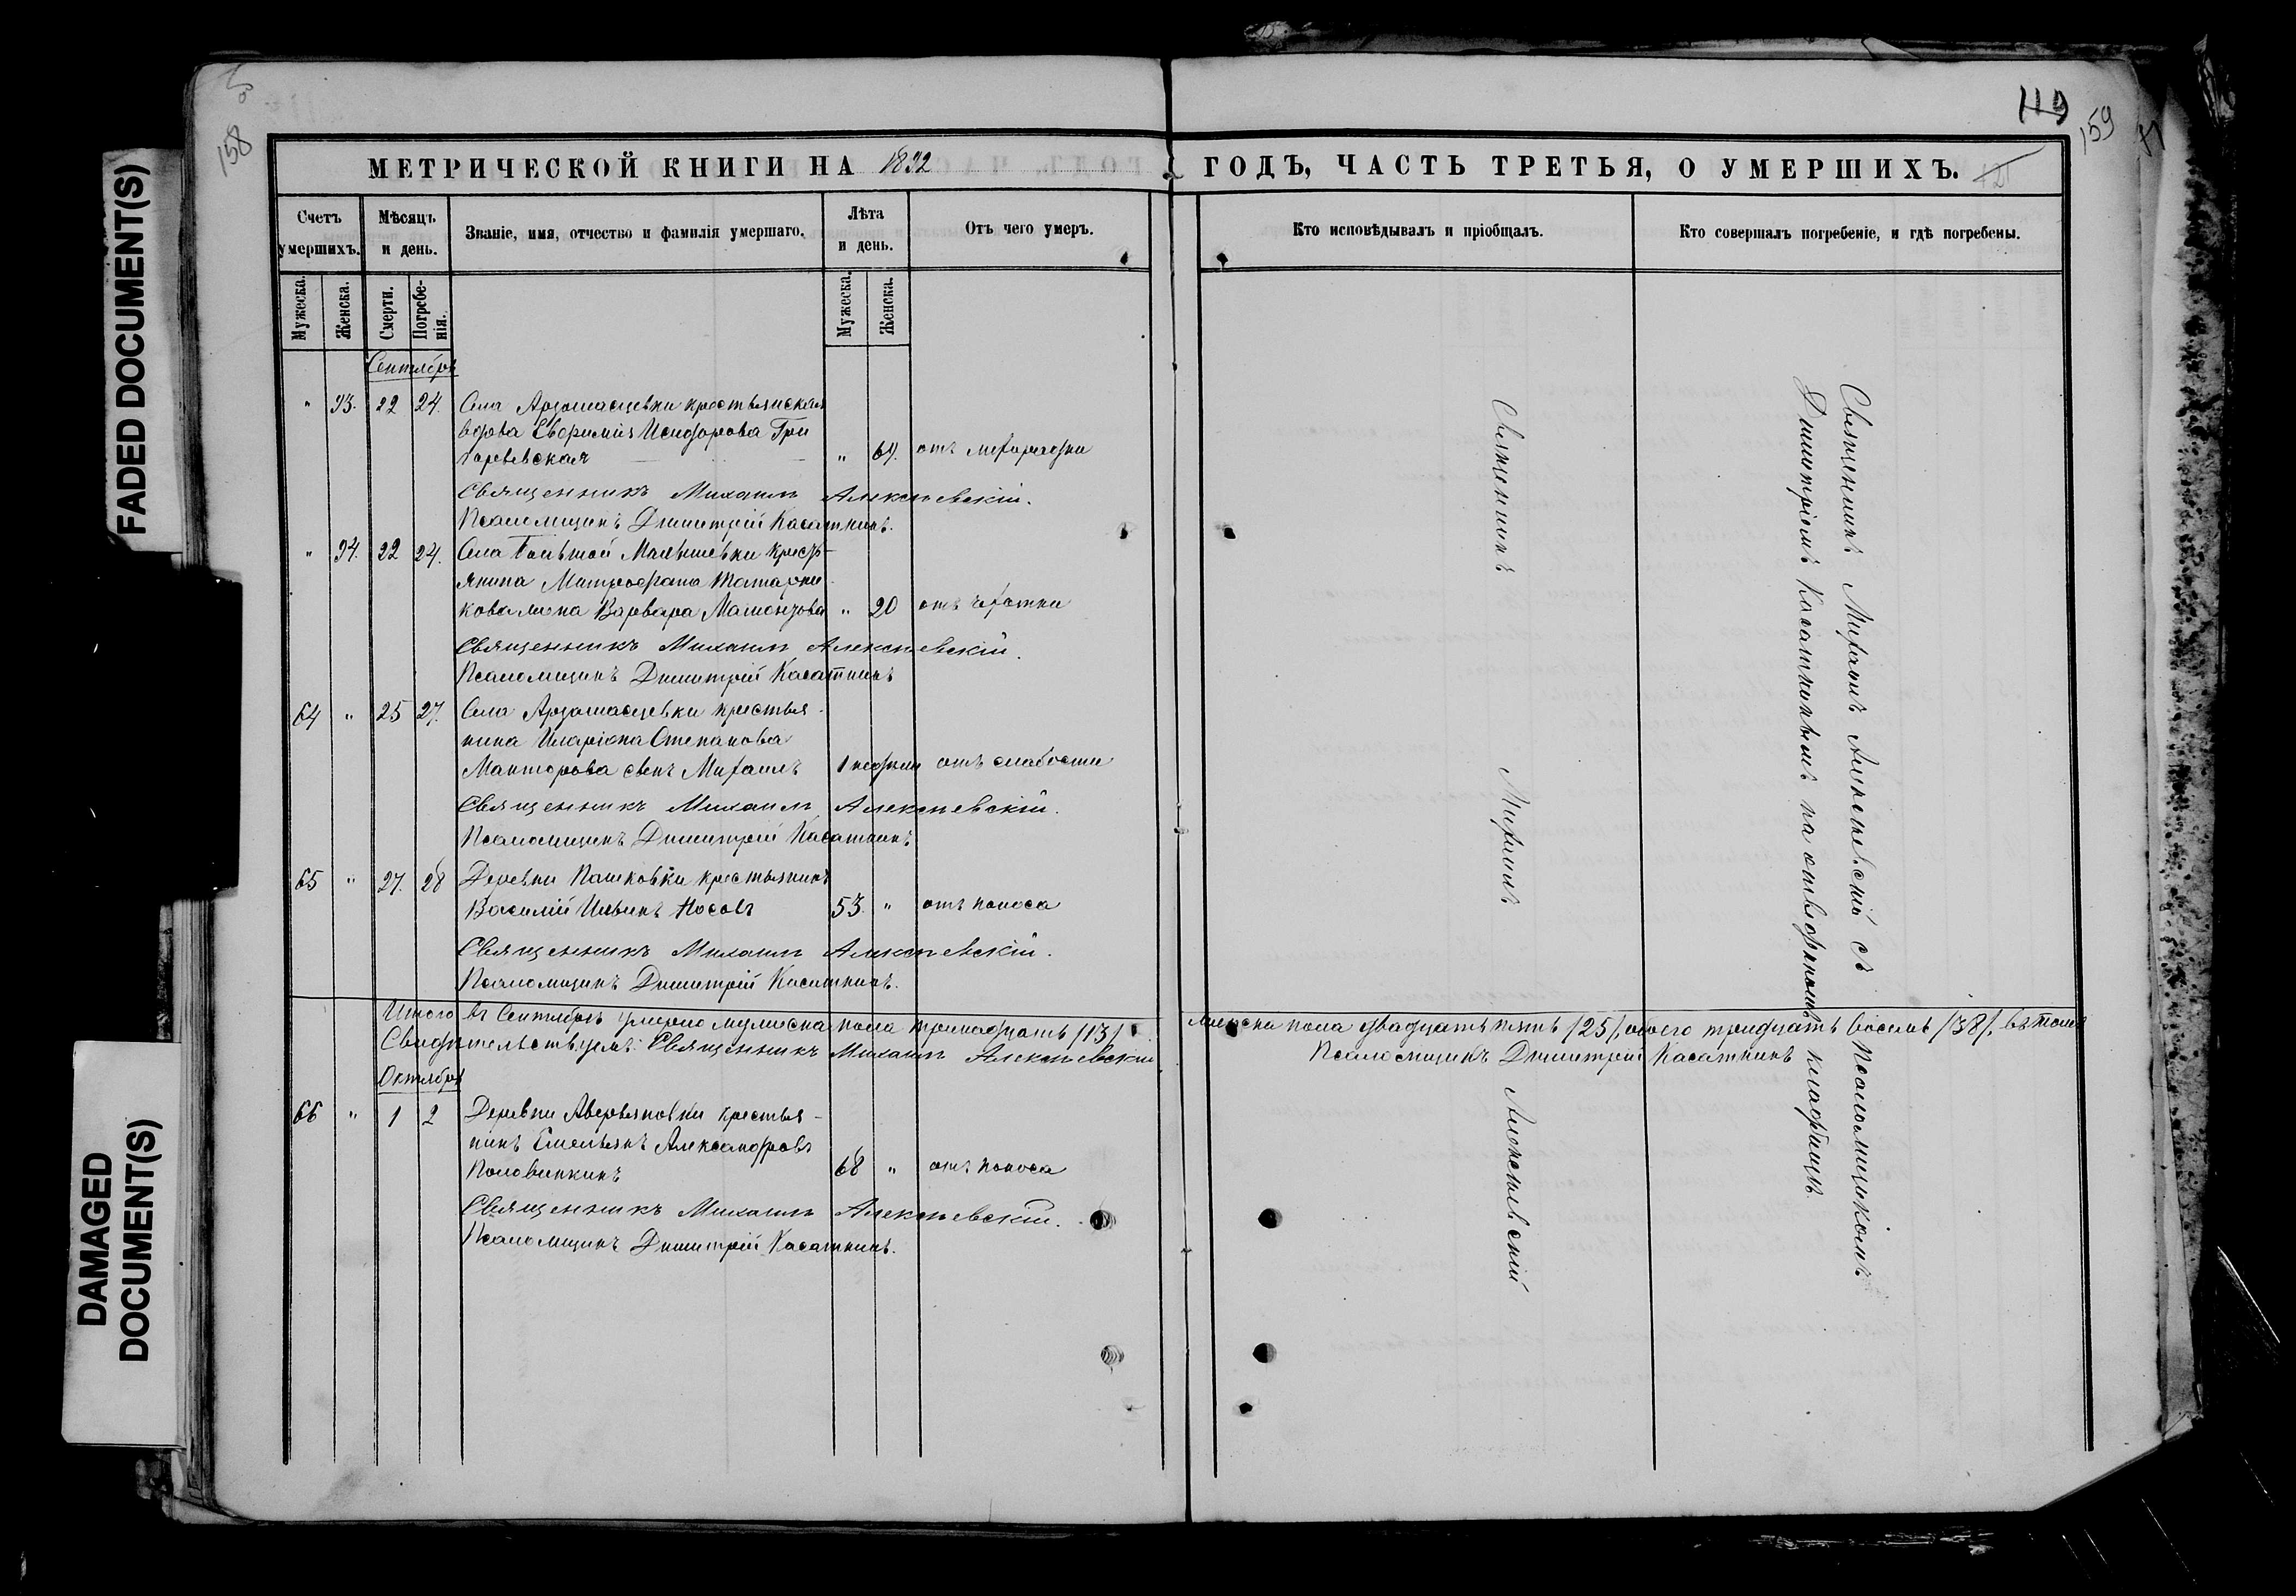 FADED DOCUMENT(S)
DAMAGED
DOCUMENT(S)
158
119
159
МЕТРИЧЕСКОЙ КНИГИ НА 1892
ГОДЪ, ЧАСТЬ ТРЕТЬЯ, О УМЕРШИХЪ.
Счетъ умершихъ.
Мѣсяцъ и день.
Званіе, имя, отчество и фамилія умершаго.
Лѣта и день.
Отъ чего умеръ.
Кто исповѣдывалъ и пріобщалъ.
Кто совершалъ погребеніе, и гдѣ погребены.
Мужеска.
Женска.
Смерти.
Погребенія.
Мужеска.
Женска.
Сентябрь
" 93. 22 24. Села Арзамасцевки крестьянская
вдова Евфимія Исидорова Гри
горьевская " 64. отъ лихорадки
Священникъ Михаилъ Алексѣевскій.
Псаломщикъ Димитрій Касаткинъ.
" 94. 22 24. Села Большой Малышевки кресть-
янина Митрофана Татарни
кова жена Варвара " 20 отъ чахотки
Священникъ Михаилъ Алексѣевскій.
Псаломщикъ Димитрій Касаткинъ
64 " 25 27. Села Арзамасцевки крестья-
нина Иларіона Степанова
Манторова сынъ Михаилъ 1 недѣли отъ слабости
Священникъ Михаилъ Алексѣевскій.
Псаломщикъ Димитрій Касаткинъ
65 " 27. 28 Деревни Пашковки крестьянинъ
Василій Ильинъ Носовъ 53. " отъ поноса
Священникъ Михаилъ Алексѣевскій.
Псаломщикъ Димитрій Касаткинъ.
Итого въ Сентябрѣ умерло мужеска пола тринадцать /13/ женска пола двадцать пять /25/, обоего тридцать восемь /38/, въ томъ
Свидѣтельствуемъ: Священникъ Михаилъ Алексѣевскій Псаломщикъ Димитрій Касаткинъ
Октябрь
66 " 1 2 Деревни Аверьяновки крестья-
нинъ Емельянъ Александровъ
Половинкинъ 68 " отъ поноса
Священникъ Михаилъ Алексѣевскій.
Псаломщикъ Димитрій Касаткинъ.
Священникъ Михаилъ Алексѣевскій
Священникъ Михаилъ Алексѣевскій съ Псаломщикомъ
Димитріемъ Касаткинымъ на отведенномъ кладбищѣ.